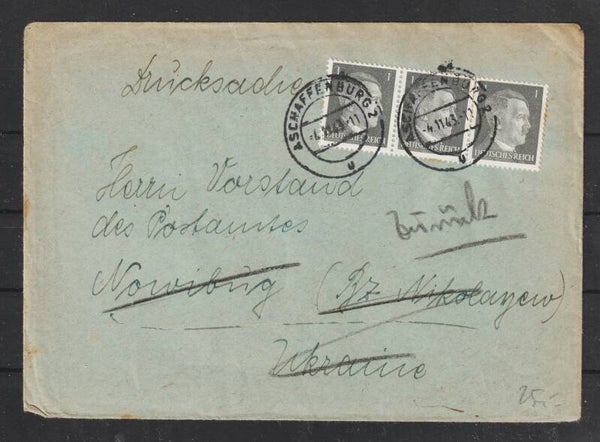 Drucksache
1 1 1
ASCHAFFENBURG 2
-4.11.43.-11
u
ASCHAFFENBURG 2
-4.11.43.-12
u
DEUTSCHES REICH
DEUTSCHES REICH
Herrn Vorstand
des Postamtes
Zurück
Nowibug (Bz Nikolajew)
Ukraine
25,-